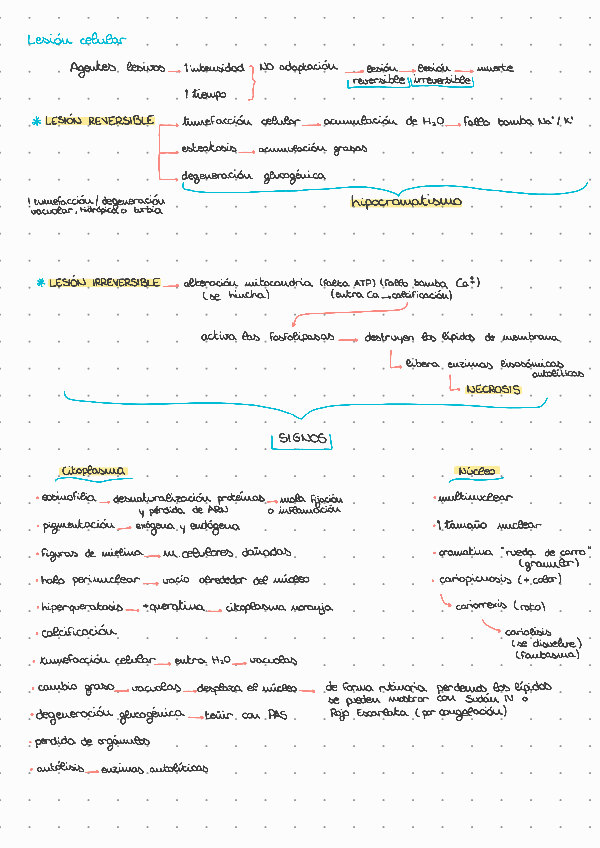 Lesión celular
Agentes lesivos → ↑ intensidad NO adaptación → lesión → lesión → muerte
reversible irreversible
↑ tiempo
* LESIÓN REVERSIBLE → tumefacción celular → acumulación de H₂O → fallo bomba Na⁺/K⁺
esteatosis → acumulación grasas
degeneración glucogénica
! tumefacción/degeneración
vacuolar, hidrópica o turbia
hipocromatismo
* LESIÓN IRREVERSIBLE → alteración mitocondria (falta ATP) (fallo bomba Ca⁺²)
(se hincha) (entra Ca → calcificación)
activa las fosfolipasas → destruyen los lípidos de membrana
libera enzimas lisosómicas
autolíticas
NECROSIS
SIGNOS
Citoplasma
Núcleo
• eosinofilia → desnaturalización proteínas → mala fijación
y pérdida de ARN o inflamación
• pigmentación → exógena y endógena
• figuras de mielina → m. celulares dañadas
• halo perinuclear → vacío alrededor del núcleo
• hiperqueratosis → +queratina → citoplasma naranja
• calcificación
• tumefacción celular → entra H₂O → vacuolas
• cambio graso → vacuolas → desplaza el núcleo → de forma rutinaria perdemos los lípidos
se pueden mostrar con Sudán IV o
Rojo Escarlata (por congelación)
• degeneración glucogénica → teñir con PAS
• perdida de orgánulos
• autólisis → enzimas autolíticas
• multinuclear
• ↑ tamaño nuclear
• cromatina "rueda de carro"
(granular)
• cariopicnosis (+ color)
cariorrexis (roto)
cariolisis
(se disuelve)
(fantasma)